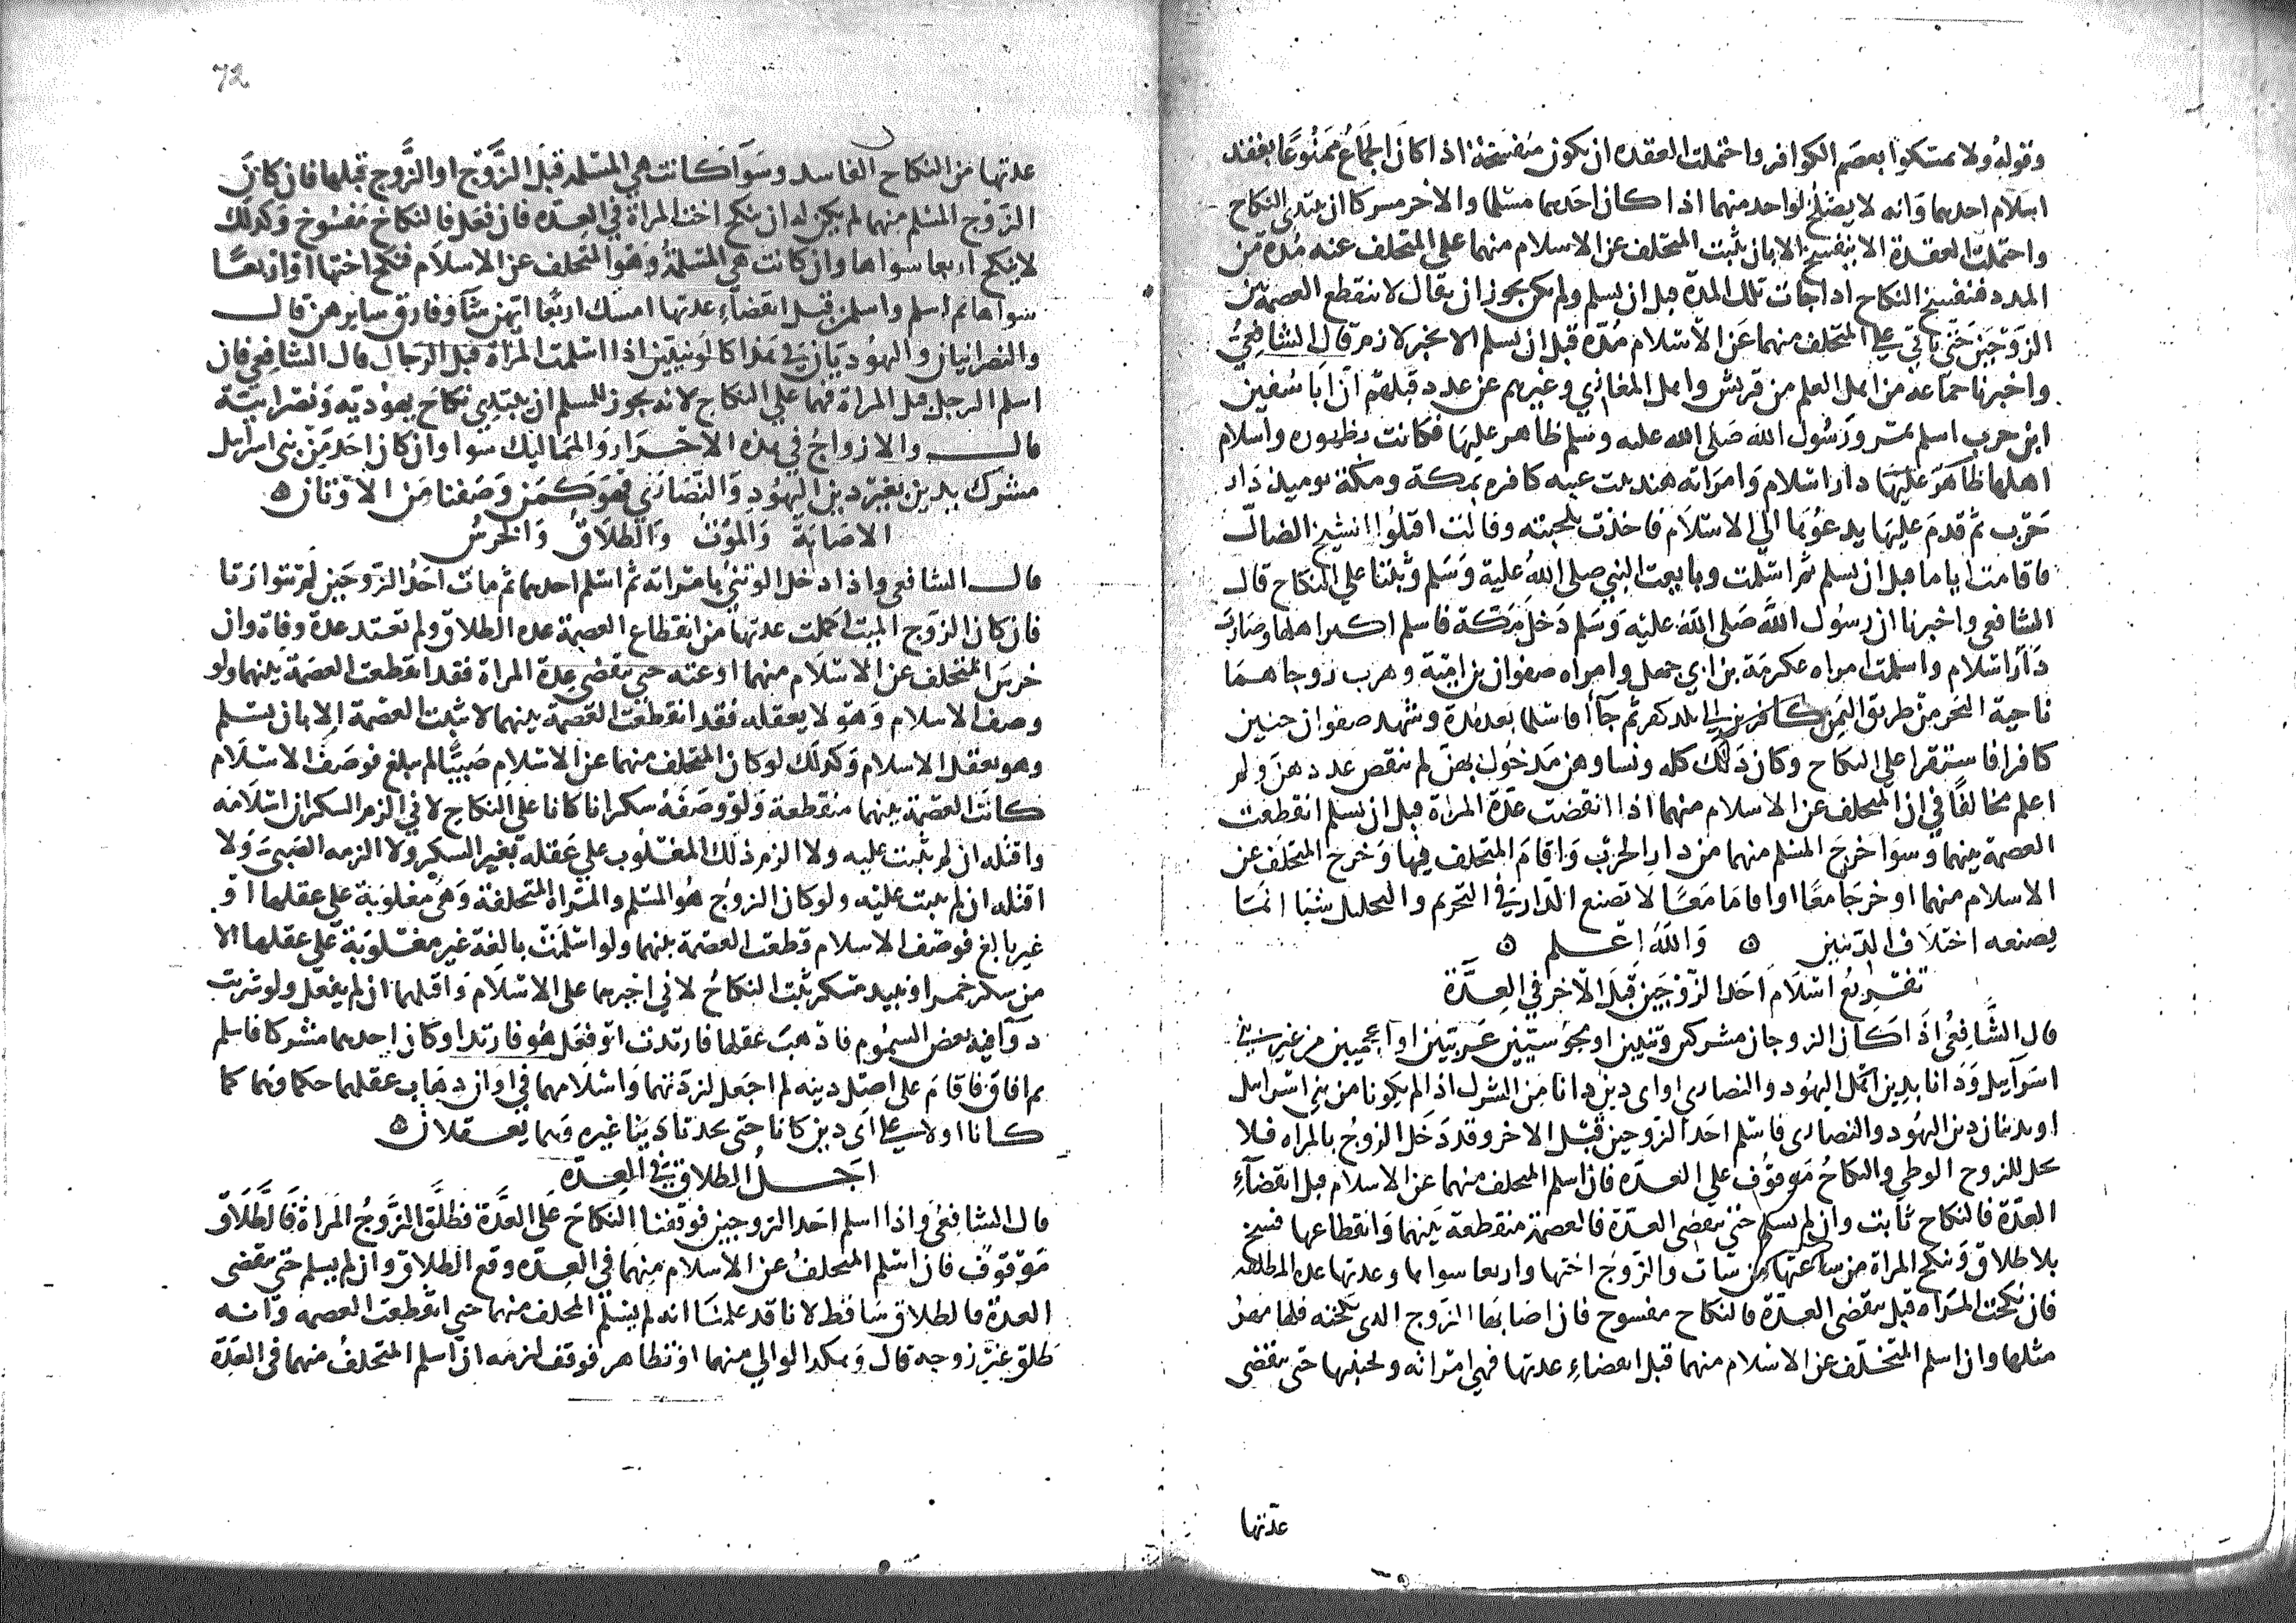 وقوله ولا تمسكوا بعصم الكوافر واحتملت العقده ان يكون منفسخة اذا كان الجماع ممنوعا بعقد
اسلام احدهما وانه لا يصلح لواحد منهما اذا كان احدهما مسلما والاخر مشركا ان يبتدي النكاح
واحتملت العقدة الا ينفسخ الا بان يثبت المتخلف عن الاسلام منهما على التخلف عنه مدة من
المدد فينفسخ النكاح اذا جات تلك المدة قبل ان يسلم ولم يكن يجوز ان يقال لا تنقطع العصمة بين
الزوجين حتى ياتي على المتخلف منهما عن الاسلام مدة قبل ان يسلم الا بخبر لازم قال الشافعي
واخبرنا جماعة من اهل العلم من قريش واهل المغازي وغيرهم عن عدد قبلهم ان ابا سفين
ابن حرب اسلم بمر ورسول الله صلى الله عليه وسلم ظاهر عليها فكانت بظهوره واسلام
اهلها ظاهر عليها دار اسلام وامراته هند بنت عتبه كافره بمكة ومكة يوميذ دار
حرب ثم قدم عليها يدعوها الى الاسلام فاخذت بلحيته وقالت اقتلوا الشيخ الضال
فاقامت اياما قبل ان تسلم ثم اسلمت وبايعت النبي صلى الله عليه وسلم وثبتنا على النكاح قال
الشافعي واخبرنا ان رسول الله صلى الله عليه وسلم دخل مكة فاسلم اكثر اهلها وصارت
دار اسلام واسلمت امراه عكرمة بن ابي جهل وامراه صفوان بن امية وهرب زوجاهما
ناحية البحر من طريق اليمن كافرين الى بلد كفر ثم جاآ فاسلما بعد مدة وشهد صفوان حنين
كافرا فاستقرا على النكاح وكان ذلك كله ونساوهن مدخول بهن لم تنقض عددهن ولم
اعلم مخالفا في ان المتخلف عن الاسلام منهما اذا انقضت عدة المراة قبل ان يسلم انقطعت
العصمة بينهما وسوا خرج المسلم منهما من دار الحرب واقام المتخلف فيها وخرج المتخلف عن
الاسلام منهما او خرجا معا او اقاما معا لا تصنع الدار في التحريم والتحليل شيا انما
يصنعه اختلاف الدينين ه والله اعلم ه
تفريع اسلام احد الزوجين قبل الاخر في العدة
قال الشافعي اذا كان الزوجان مشركين وثنيين او مجوسيين عربيين او اعجميين من غير بني
اسرايل ودانا بدين اهل اليهود والنصاري او اي دين دانا من الشرك اذا لم يكونا من بني اسرايل
او يدينان دين اليهود والنصارى فاسلم احد الزوجين قبل الاخر وقد دخل الزوج بالمراه فلا
يحل للزوج الوطي والنكاح موقوف على العدة فان اسلم المتخلف منهما عن الاسلام قبل انقضآء
العدة فالنكاح ثابت وان لم يسلم حتى تنقضي العدة فالعصمة منقطعة بينهما وانقطاعها فسخ
بلا طلاق وتنكح المراة من ساعتها من شات والزوج اختها واربعا سواها وعدتها عده المطلقه
فان نكحت المراه قبل تنقضي العدة فالنكاح مفسوخ فان اصابها الزوج الذي نكحته فلها مهر
مثلها وان اسلم المتخلف عن الاسلام منهما قبل انقضاء عدتها فهي امراته ويجتنبها حتى تنقضي
عدتها
72
عدتها من النكاح الفاسد وسوا كانت هي المسلمه قبل الزوج او الزوج قبلها فان كان
الزوج المسلم منهما لم يكن له ان ينكح اخت المراة في العدة فان فعل فالنكاح مفسوخ وكذلك
لا ينكح اربعا سواها وان كانت هي المسلمة وهو المتخلف عن الاسلام فنكح اختها او اربعا
سواها ثم اسلم واسلمن قبل انقضاء عدتها امسك اربعا ايهن شا وفارق سايرهن قال
والنصرانيان واليهوديان في هذا كالوثنيين اذا اسلمت المراة قبل الرجال قال الشافعي فان
اسلم الرجل قبل المراة فهما على النكاح لانه يجوز للمسلم ان يبتدي نكاح يهوديه ونصرانية
قال والازواج في هذه الاحرار والمماليك سوا وان كان احد من بني اسرايل
مشرك يدين بغير دين اليهود والنصارى فهو كمن وصفنا من الاوثان ه
الاصابة والموت والطلاق والخرس
قال الشافعي واذا دخل الوثني بامراته ثم اسلم احدهما ثم مات احد الزوجين لم يتوارثا
فان كان الزوج الميت اكملت عدتها من انقطاع العصمة عده الطلاق ولم تعتد عدة وفاة وان
خرس المتخلف عن الاسلام منهما او عته حتى تنقضي عدة المراة فقد انقطعت العصمة بينهما ولو
وصف الاسلام وهو لا يعقله فقد انقطعت العصمة بينهما لا تثبت العصمة الا بان يسلم
وهو يعقل الاسلام وكذلك لو كان المتخلف منهما عن الاسلام صبيا لم يبلغ فوصف الاسلام
كانت العصمة بينهما منقطعة ولو وصفه سكرانا كانا على النكاح لاني الزم السكران اسلامه
واقتله ان لم يثبت عليه ولا الزم ذلك المغلوب على عقله بغير السكر ولا الزمه الصبي ولا
اقتله ان لم يثبت عليه ولو كان الزوج هو المسلم والمراة المتخلفة وهي مغلوبة على عقلها او
غير بالغ فوصف الاسلام قطعت العصمة بينهما ولو اسلمت بالغة غير مغلوبة على عقلها الا
من سكر خمر او نبيذ مسكر ثبت النكاح لاني اجبرها على الاسلام واقتلها ان لم يفعل ولو شربت
دوآ فيه بعض السموم فاذهب عقلها فارتدت او فعل هو فارتد او كان احدهما مشركا فاسلم
ثم افاق فاقام على اصل دينه لم اجعل لردتهما واسلامهما في اوان ذهاب عقلهما حكما وهما كما
كانا اولا على اي دين كانا حتى يحدثا دينا غيره وهما يعقلان ه
اجل الطلاق في العده
قال الشافعي واذا اسلم احد الزوجين فوقفنا النكاح على العدة فطلق الزوج المراة فالطلاق
موقوف فان اسلم المتخلف عن الاسلام منهما في العده وقع الطلاق وان لم يسلم حتى تنقضي
العدة فالطلاق ساقط لانا قد علمنا انه لم يسلم المتخلف منهما حتى انقطعت العصمه وانه
طلق غير زوجه قال وهكذا لو الى منها او تظاهر فوقف لزمه ان اسلم المتخلف منهما في العدة